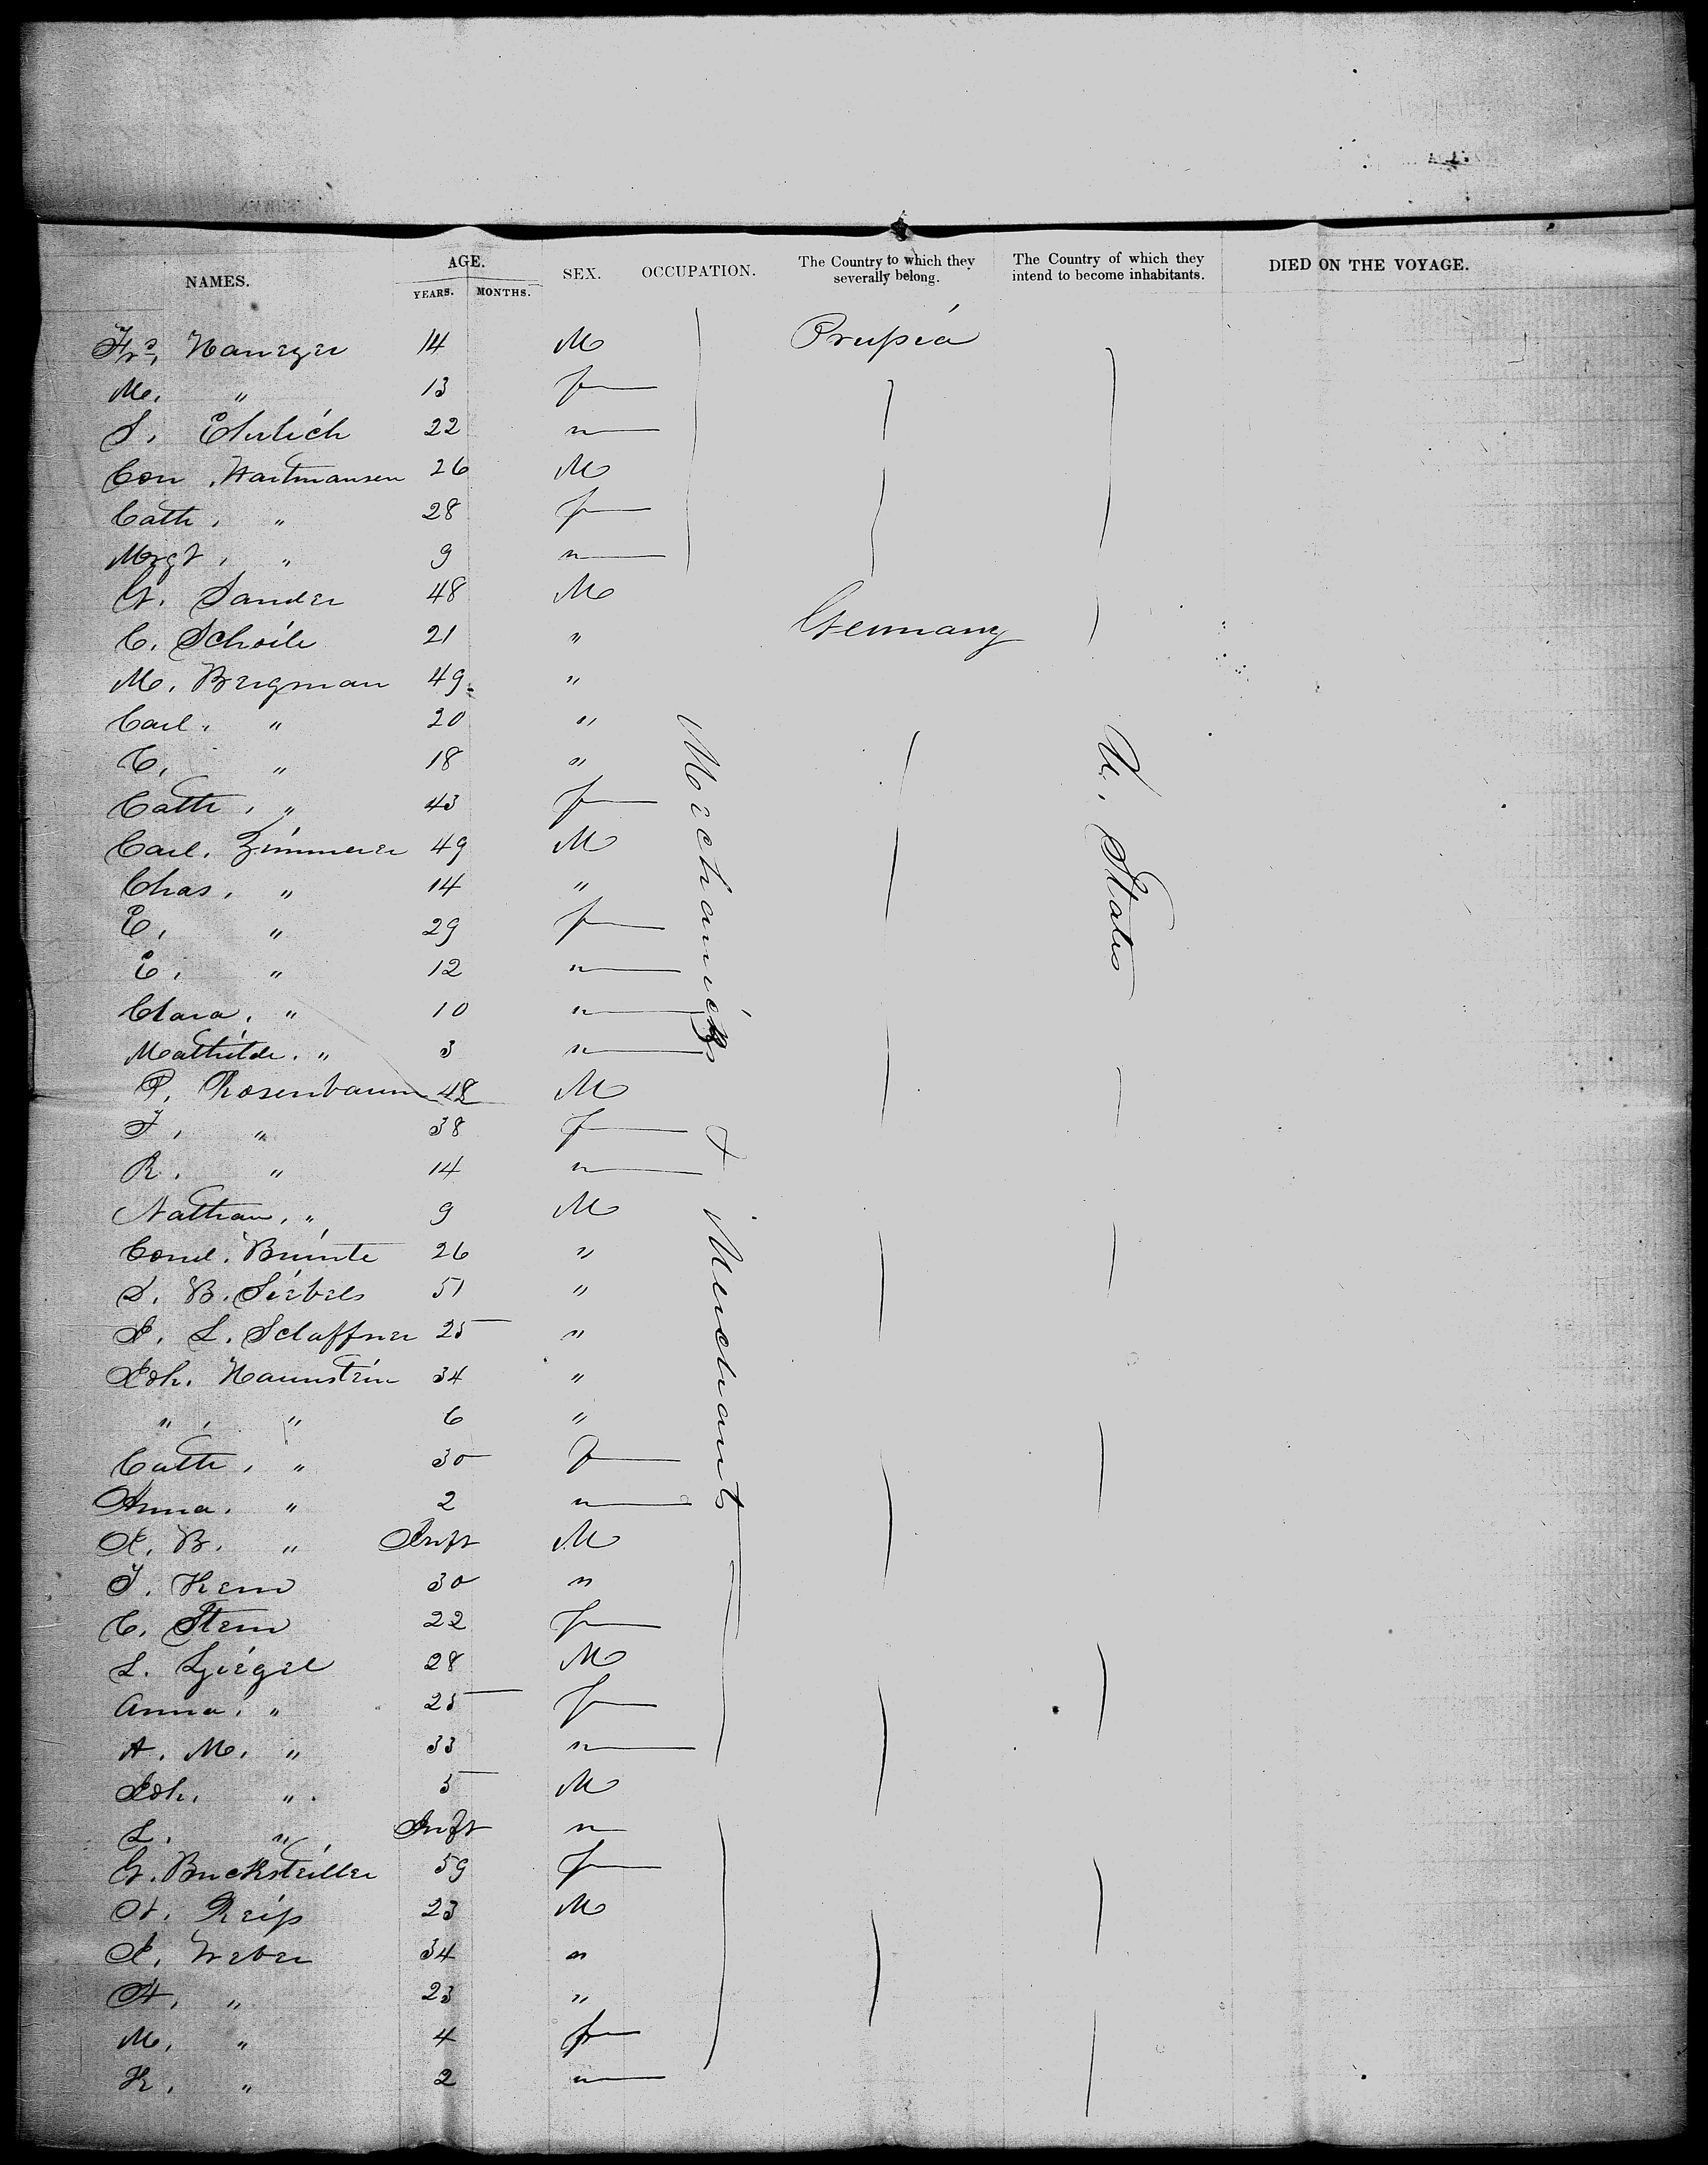 NAMES. AGE. YEARS. MONTHS. SEX. OCCUPATION. The Country to which they severally belong. The Country of which they intend to become inhabitants. DIED ON THE VOYAGE.
Frs, 14 M Prussia
M. " 13 f
S. Ehrlich 22 "
Con . Hartmansen 26 M
Cath , " 28 f
Mrgt , " 9 "
G. Sander 48 M
C. Schoile 21 " Germany
M. Bergman 49 "
Carl . " 20 "
C. " 18 "
Cath , " 43 f
Carl . Zimmerer 49 M
Chas . " 14 "
E. " 29 f
E. " 12 "
Clara . " 10 "
Mathilde . " 3 "
P. Rosenbaum 48 M
F. " 38 f
R. " 14 "
Nathan . " 9 M
Cond . 26 "
S. B. Siebels 51 "
J. L. Schaffner 25 "
Joh. Naunstein 34 "
" , " 6 "
Cath , " 30 f
Anna . " 2 "
J. B. " Inft M
J. Kern 30 "
C. Stern 22 f
L. 28 M
Anna . " 25 f
A. M. " 33 "
Joh. " 5 M
L. " Inft "
G. Bucksteiller 59 f
H. Reiss 23 M
J. Weber 34 "
H. " 23 "
M. " 4 f
K. " 2 "
Mechanicks & Merchants
U. States